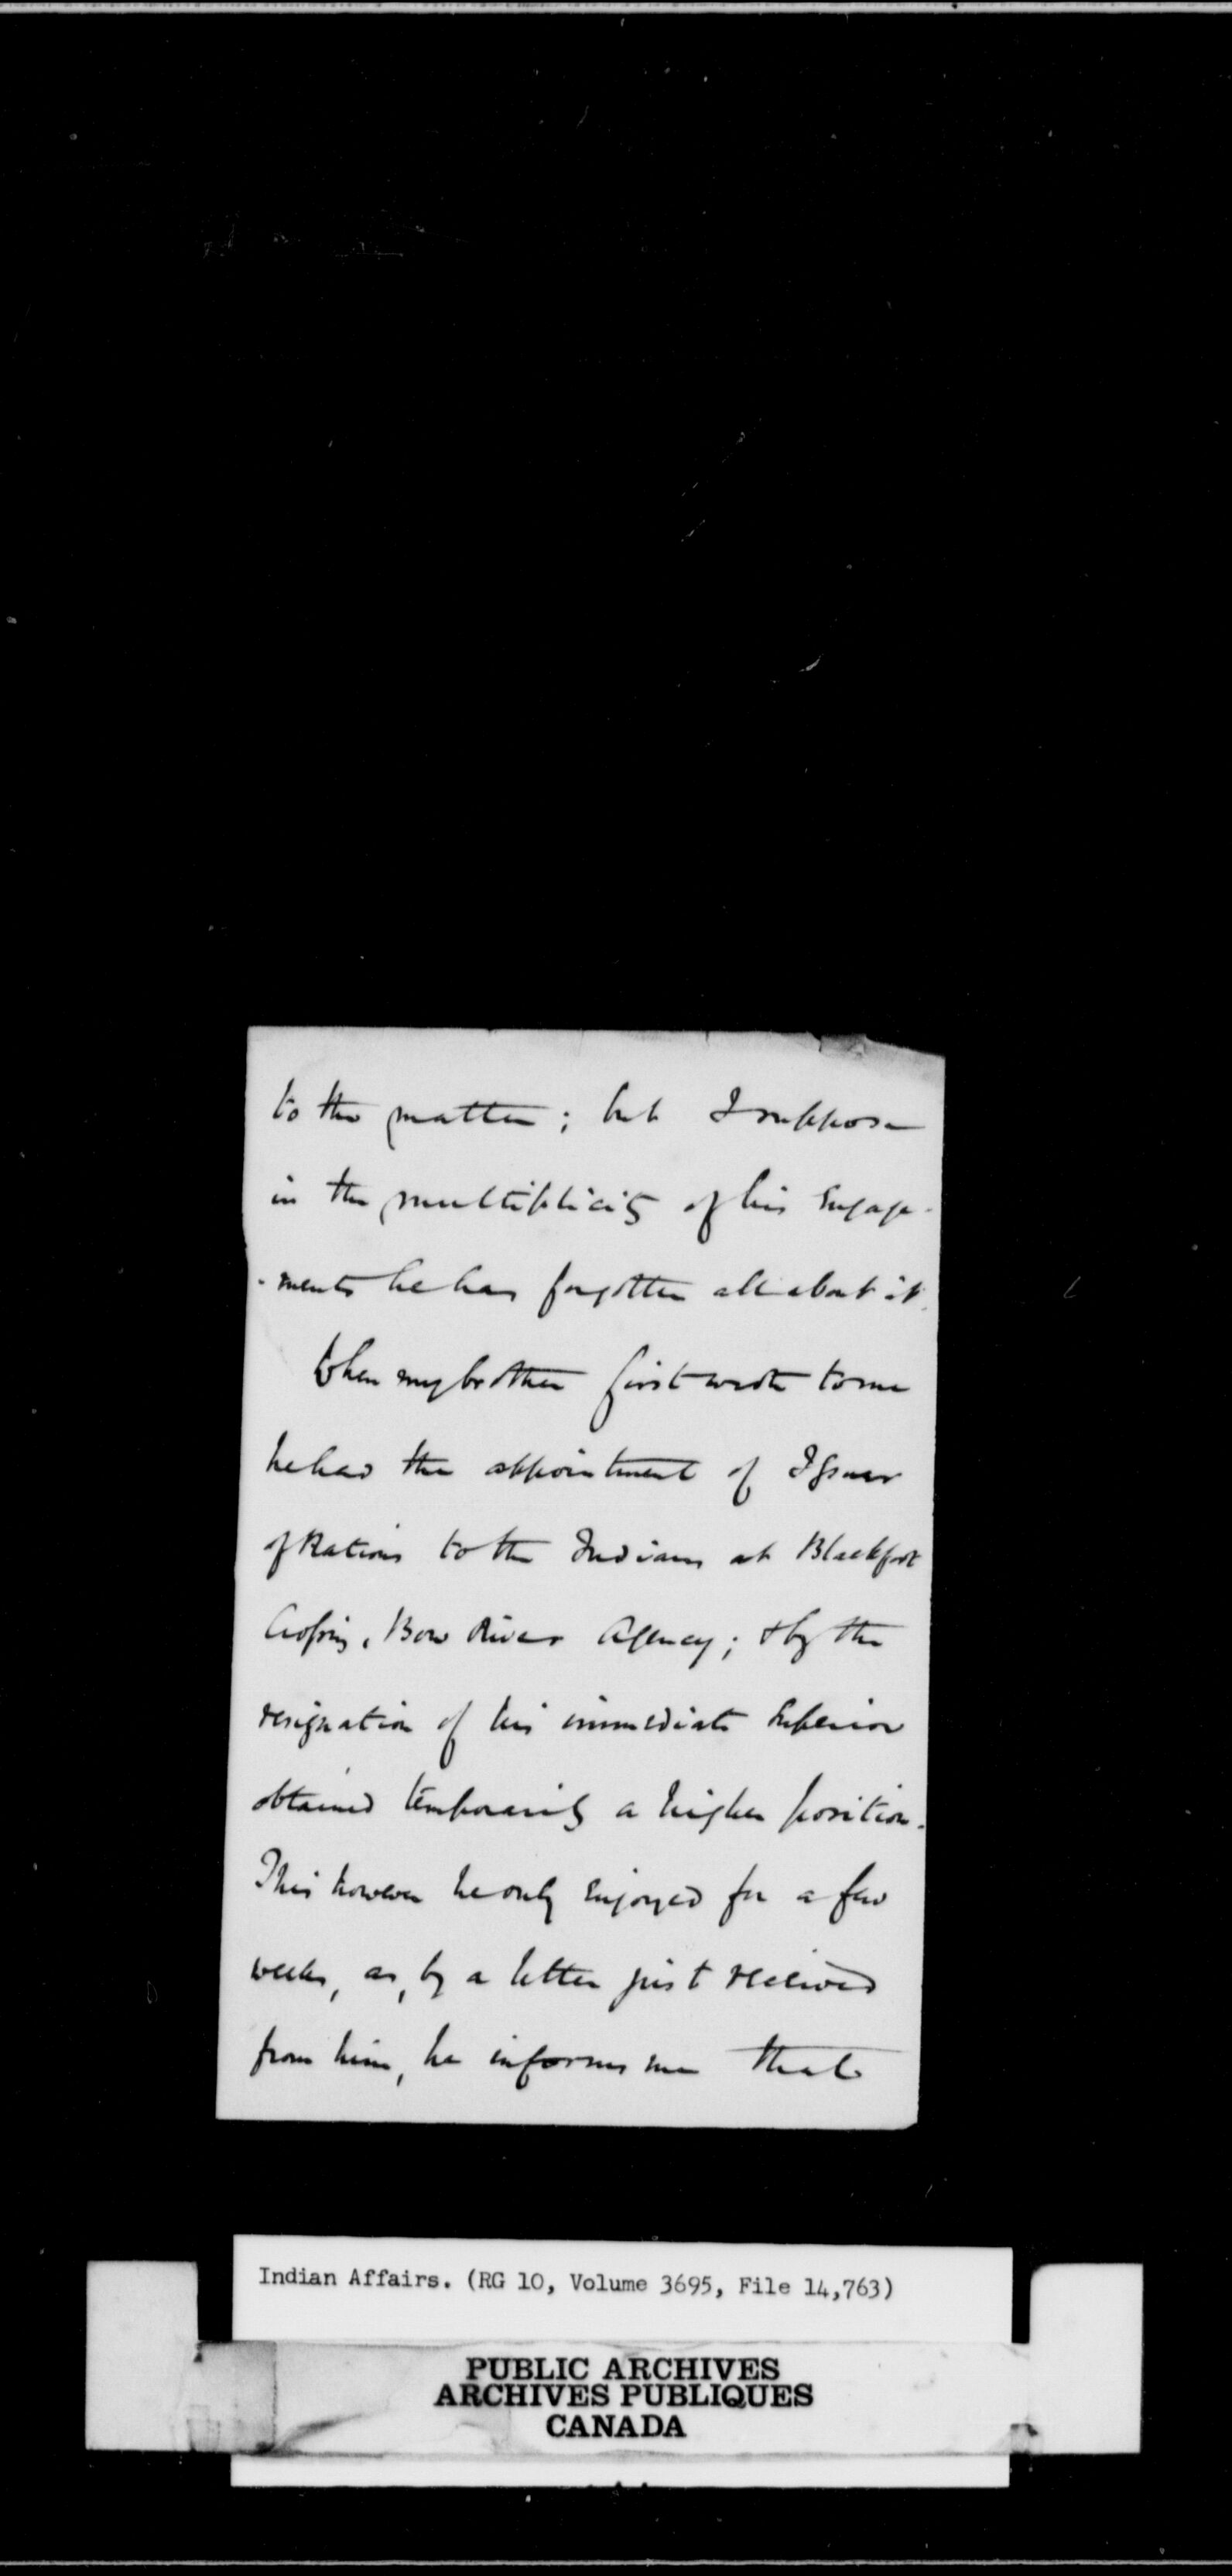 to the matter; but I suppose
in the multiplicity of his Engage-
-ments he has forgotten all about it.
When my brother first wrote to me
he had the appointment of Issuer
of Rations to the Indians at Blackfoot
Crossing, Bow River Agency; & by the
resignation of his immediate Superior
obtained temporarily a higher position.
This however he only enjoyed for a few
weeks, as, by a letter just received
from him, he informs me that
Indian Affairs. (RG 10, Volume 3695, File 14,763)
PUBLIC ARCHIVES
ARCHIVES PUBLIQUES
CANADA